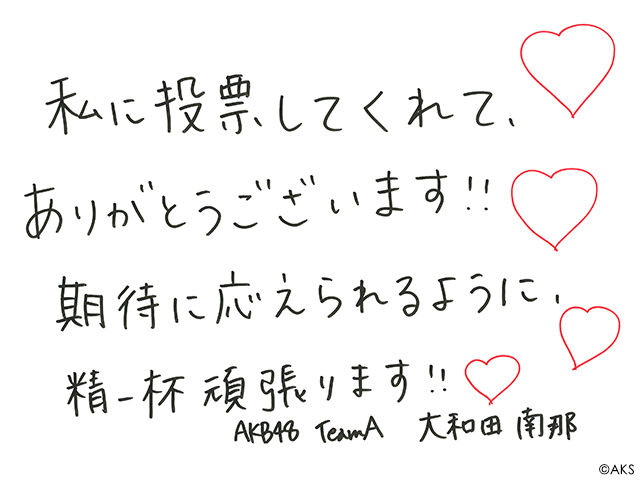 私に投票してくれて、
ありがとうございます!!
期待に応えられるように、
精一杯頑張ります!!
AKB48 TeamA 大和田南那
©AKS